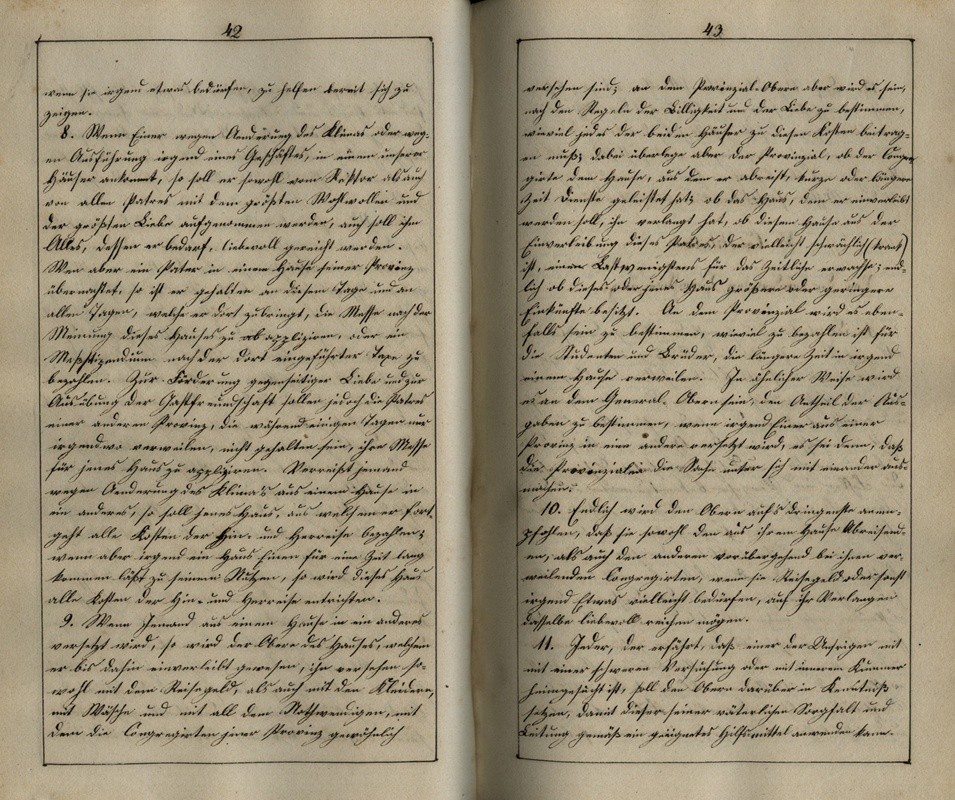 42
wenn sie irgend etwas bedürfen, zu helfen bereit sich zu
zeigen.
8. Wenn Einer wegen Aenderung des Klimas oder weg-
en Ausführung irgend eines Geschäftes, in einem unserer
Häuser ankommt, so soll er sowohl vom Rektor als auch
von allen Patres mit dem größten Wohlwollen und
der größten Liebe aufgenommen werden, auch soll ihm
Alles, dessen er bedarf, liebevoll gereicht werden.
Wen aber ein Pater in einem Hause seiner Provinz
übernachtet, so ist er gehalten an diesem Tage und an
allen Tagen, welche er dort zubringt, die Messe nach der
Meinung dieses Hauses zu appliziren, oder ein
Meßstipendium nach der dort eingeführten Taxe zu
bezahlen. Zur Förderung gegenseitiger Liebe und zur
Ausübung der Gastfreundschaft sollen jedoch die Patres
einer anderen Provinz, die während einigen Tagen nur
irgendwo verweilen, nicht gehalten sein, ihre Messe
für jenes Haus zu appliziren. Verreißt jemand
wegen Aenderung des Klima's aus einem Hause in
ein anderes, so soll jenes Haus, aus welchem er fort
geht alle Kosten der Hin- und Herreise bezahlen;
wenn aber irgend ein Haus Einen für eine Zeit lang
kommen läßt zu seinem Nutzen, so wird dieses Haus
alle Kosten der Hin- und Herreise entrichten.
9. Wenn Jemand aus einem Hause in ein anderes
versetzt wird, so wird der Obere des Hauses, welchem
er bis dahin einverleibt gewesen, ihn versehen so-
wohl mit dem Reisegeld, als auch mit den Kleidern,
mit Wäsche und mit all dem Nothwendigen, mit
dem die Congregirten jener Provinz gewöhnlich
43
versehen sind; an dem Provinzial-Obern aber wird es sein,
nach den Regeln der Billigkeit und der Liebe zu bestimmen,
wieviel jedes der beiden Häuser zu diesen Kosten beitrag-
en muß; dabei überlege aber der Provinzial, ob der Congre
girte dem Hause, aus dem er abreist, kurze oder längere
Zeit Dienste geleistet hat; ob das Haus, dem er einverleibt
werden soll, ihn verlangt hat, ob diesem Hause aus der
Einverleibung dieses Paters, der vielleicht schwächlich (krank)
ist, eine Last wenigstens für das Zeitliche erwachse; end-
lich ob dieses oder jenes Haus größere oder geringere
Einkünfte besitzt. An dem Provinzial wird es eben-
falls sein zu bestimmen, wieviel zu bezahlen ist für
die Studenten und Brüder, die längere Zeit in irgend
einem Hause verweilen. In ähnlicher Weise wird
es an dem General-Obern sein, den Antheil der Aus-
gaben zu bestimmen, wenn irgend Einer aus einer
Provinz in eine andere versetzt wird, es sei denn, daß
die Provinzialen die Sache unter sich mit einander aus-
machen.
10. Endlich wird den Obern auf's dringenste anem-
pfohlen, daß sie sowohl den aus ihrem Hause Abreisend-
en, als auch den anderen vorübergehend bei ihnen ver-
weilenden Congregirten, wenn sie Reisegeld oder sonst
irgend Etwas vielleicht bedürfen, auf ihr Verlangen
dasselbe liebevoll reichen mögen.
11. Jeder, der erfährt, daß einer der Unsrigen mit
mit einer schweren Versuchung oder mit innerem Kummer
heimgesucht ist, soll den Obern darüber in Kenntniß
setzen, damit dieser seiner väterlichen Sorgfalt und
Leitung gemäß ein geeignetes Hilfsmittel anwenden kann.